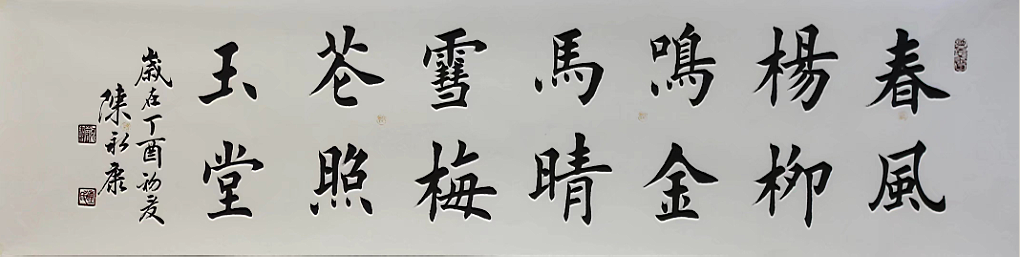 春風
楊柳
鳴金
馬晴
雪梅
花照
玉堂
歲在丁酉初夏
陳永康